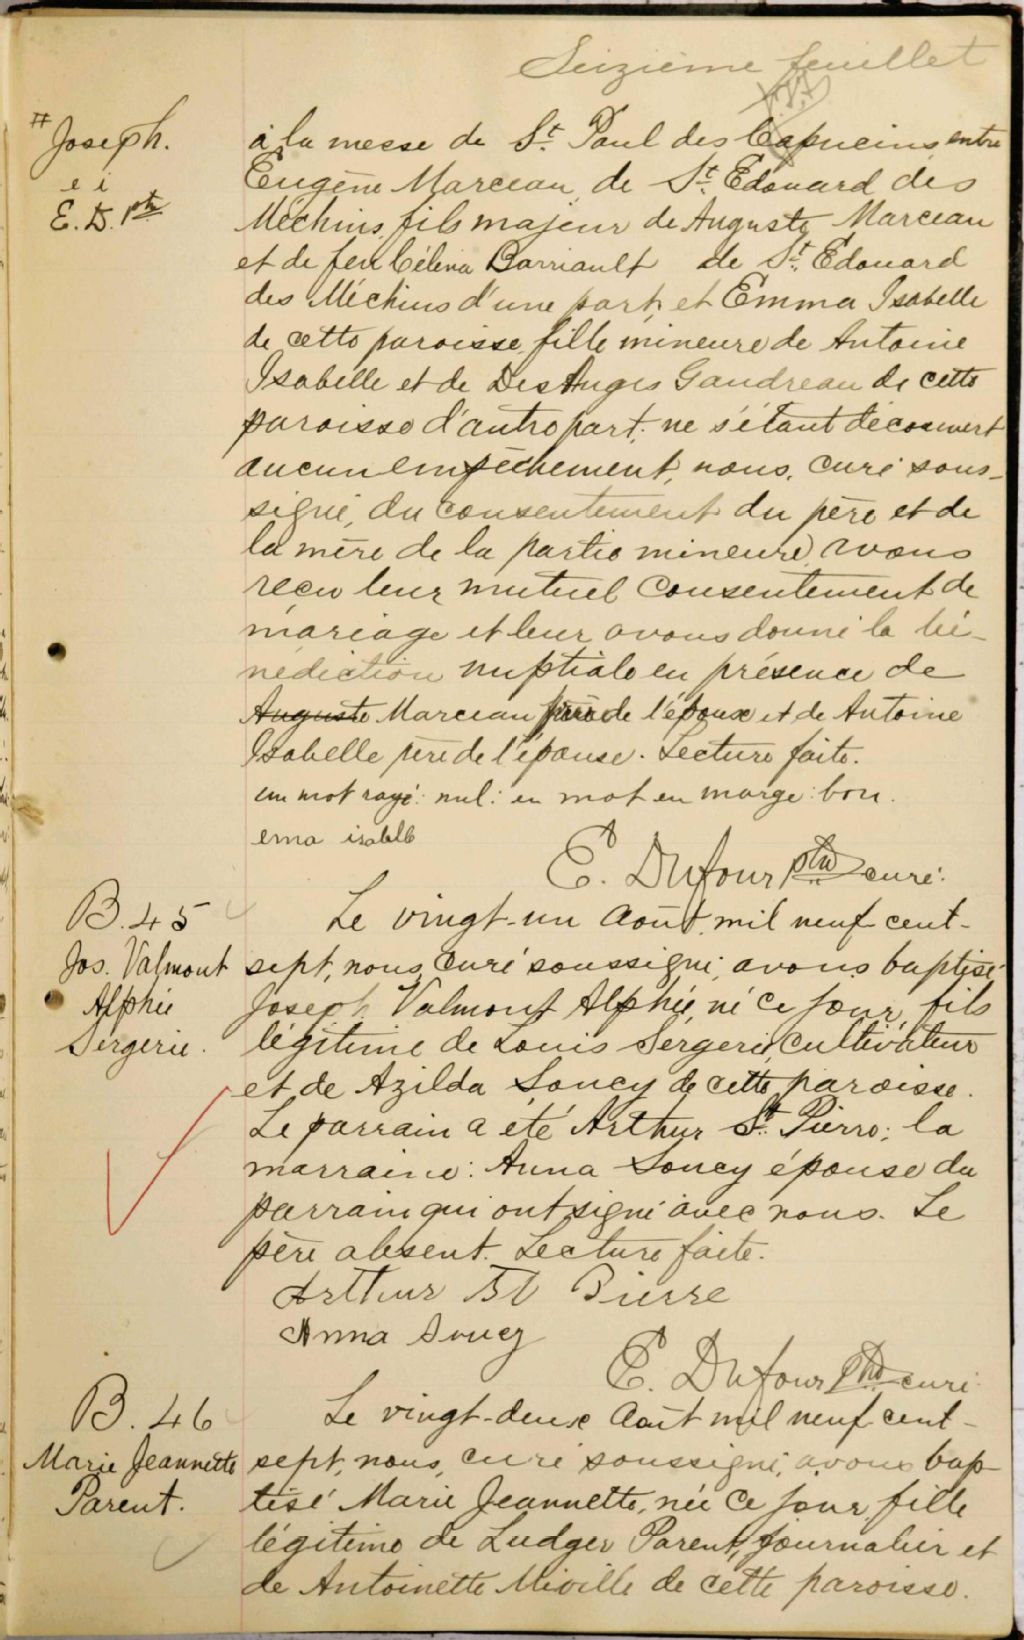 Seizième feuillet
# Joseph.
e i
E. D. ptre
à la messe de St. Paul des Capucins, entre
Eugène Marceau, de St. Edouard des
Méchins, fils majeur de Auguste Marceau
et de feu Célina Barriault de St. Edouard
des Méchins d'une part, et Emma Isabelle
de cette paroisse, fille mineure de Antoine
Isabelle et de DesAnges Gaudreau de cette
paroisse d'autre part; ne s'étant découvert
aucun empêchement, nous, curé sous-
signé, du consentement du père et de
la mère de la partie mineure, avons
reçu leur mutuel consentement de
mariage et leur avons donné la bé-
nédiction nuptiale en présence de
Auguste Marceau père de l'époux et de Antoine
Isabelle père de l'épouse. Lecture faite.
un mot rayé: nul: un mot en marge: bon.
ema isabelle
E. Dufour ptre curé.
B. 45
Jos. Valmont
Alphée
Sergerie.
Le vingt-un Août, mil neuf cent-
sept, nous, curé soussigné, avons baptisé
Joseph Valmont Alphée, né ce jour, fils
légitime de Louis Sergerie, cultivateur
et de Azilda Soucy de cette paroisse.
Le parrain a été Arthur St. Pierre; la
marraine: Anna Soucy épouse du
parrain qui ont signé avec nous. Le
père absent. Lecture faite.
Arthur St Pierre
Anna Soucy
E. Dufour ptre curé.
B. 46
Marie Jeannette
Parent.
Le vingt-deux Août mil neuf cent-
sept, nous, curé soussigné, avons bap-
tisé Marie Jeannette, née ce jour, fille
légitime de Ludger Parent, journalier et
de Antoinette Miville de cette paroisse.